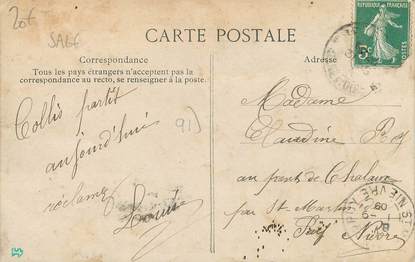 20€
SAGE
CARTE POSTALE
Correspondance
Tous les pays étrangers n'acceptent pas la
correspondance au recto, se renseigner à la poste.
Adresse
REPUBLIQUE FRANÇAISE
5c
POSTES
Collis partit
aujourd'hui
réclamez
Louise
91)
Madame
Claudine
au pont de
par St Martin
Nièvre
NIEVRE
09